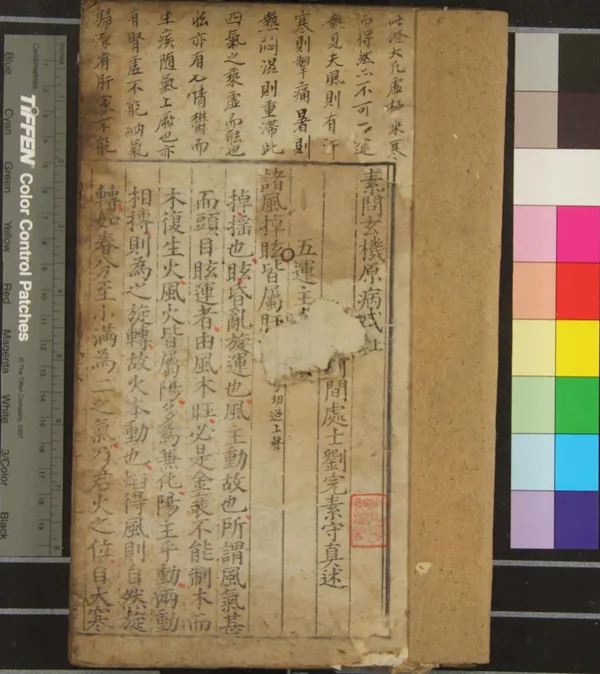 此證大凡虛極乘寒
而得然亦不可一途
執見夫風則有汗
寒則掣痛暑則
熱悶濕則重滯此
四氣之乘虛而眩也
眩亦有七情鬱而
生痰隨氣上厥也亦
有腎虛不能納氣
歸源有肝家不能
素問玄機原病式註
間處士劉完素守真述
五運主
諸風掉眩皆屬肝
切近上聲
掉搖也眩昏亂旋運也風主動故也所謂風氣甚
而頭目眩運者由風木旺必是金衰不能制木而
木復生火風火皆屬陽多為兼化陽主乎動兩動
相搏則為之旋轉故火本動也焰得風則自然旋
轉如春分至小滿為二之氣乃君火之位自大寒
TIFFEN Color Control Patches
© The Tiffen Company, 2007
Centimetres
Inches
Blue
Cyan
Green
Yellow
Red
Magenta
White
3/Color
Black